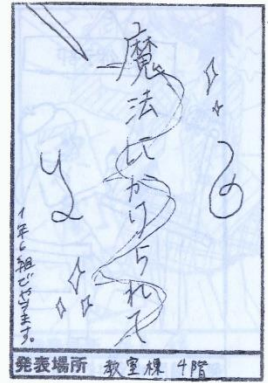 魔法にかけられて
1年6組でやります。
発表場所 教室棟 4階